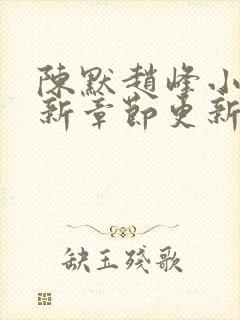 陳默趙峰小
新章節更新
缺玉殘歌